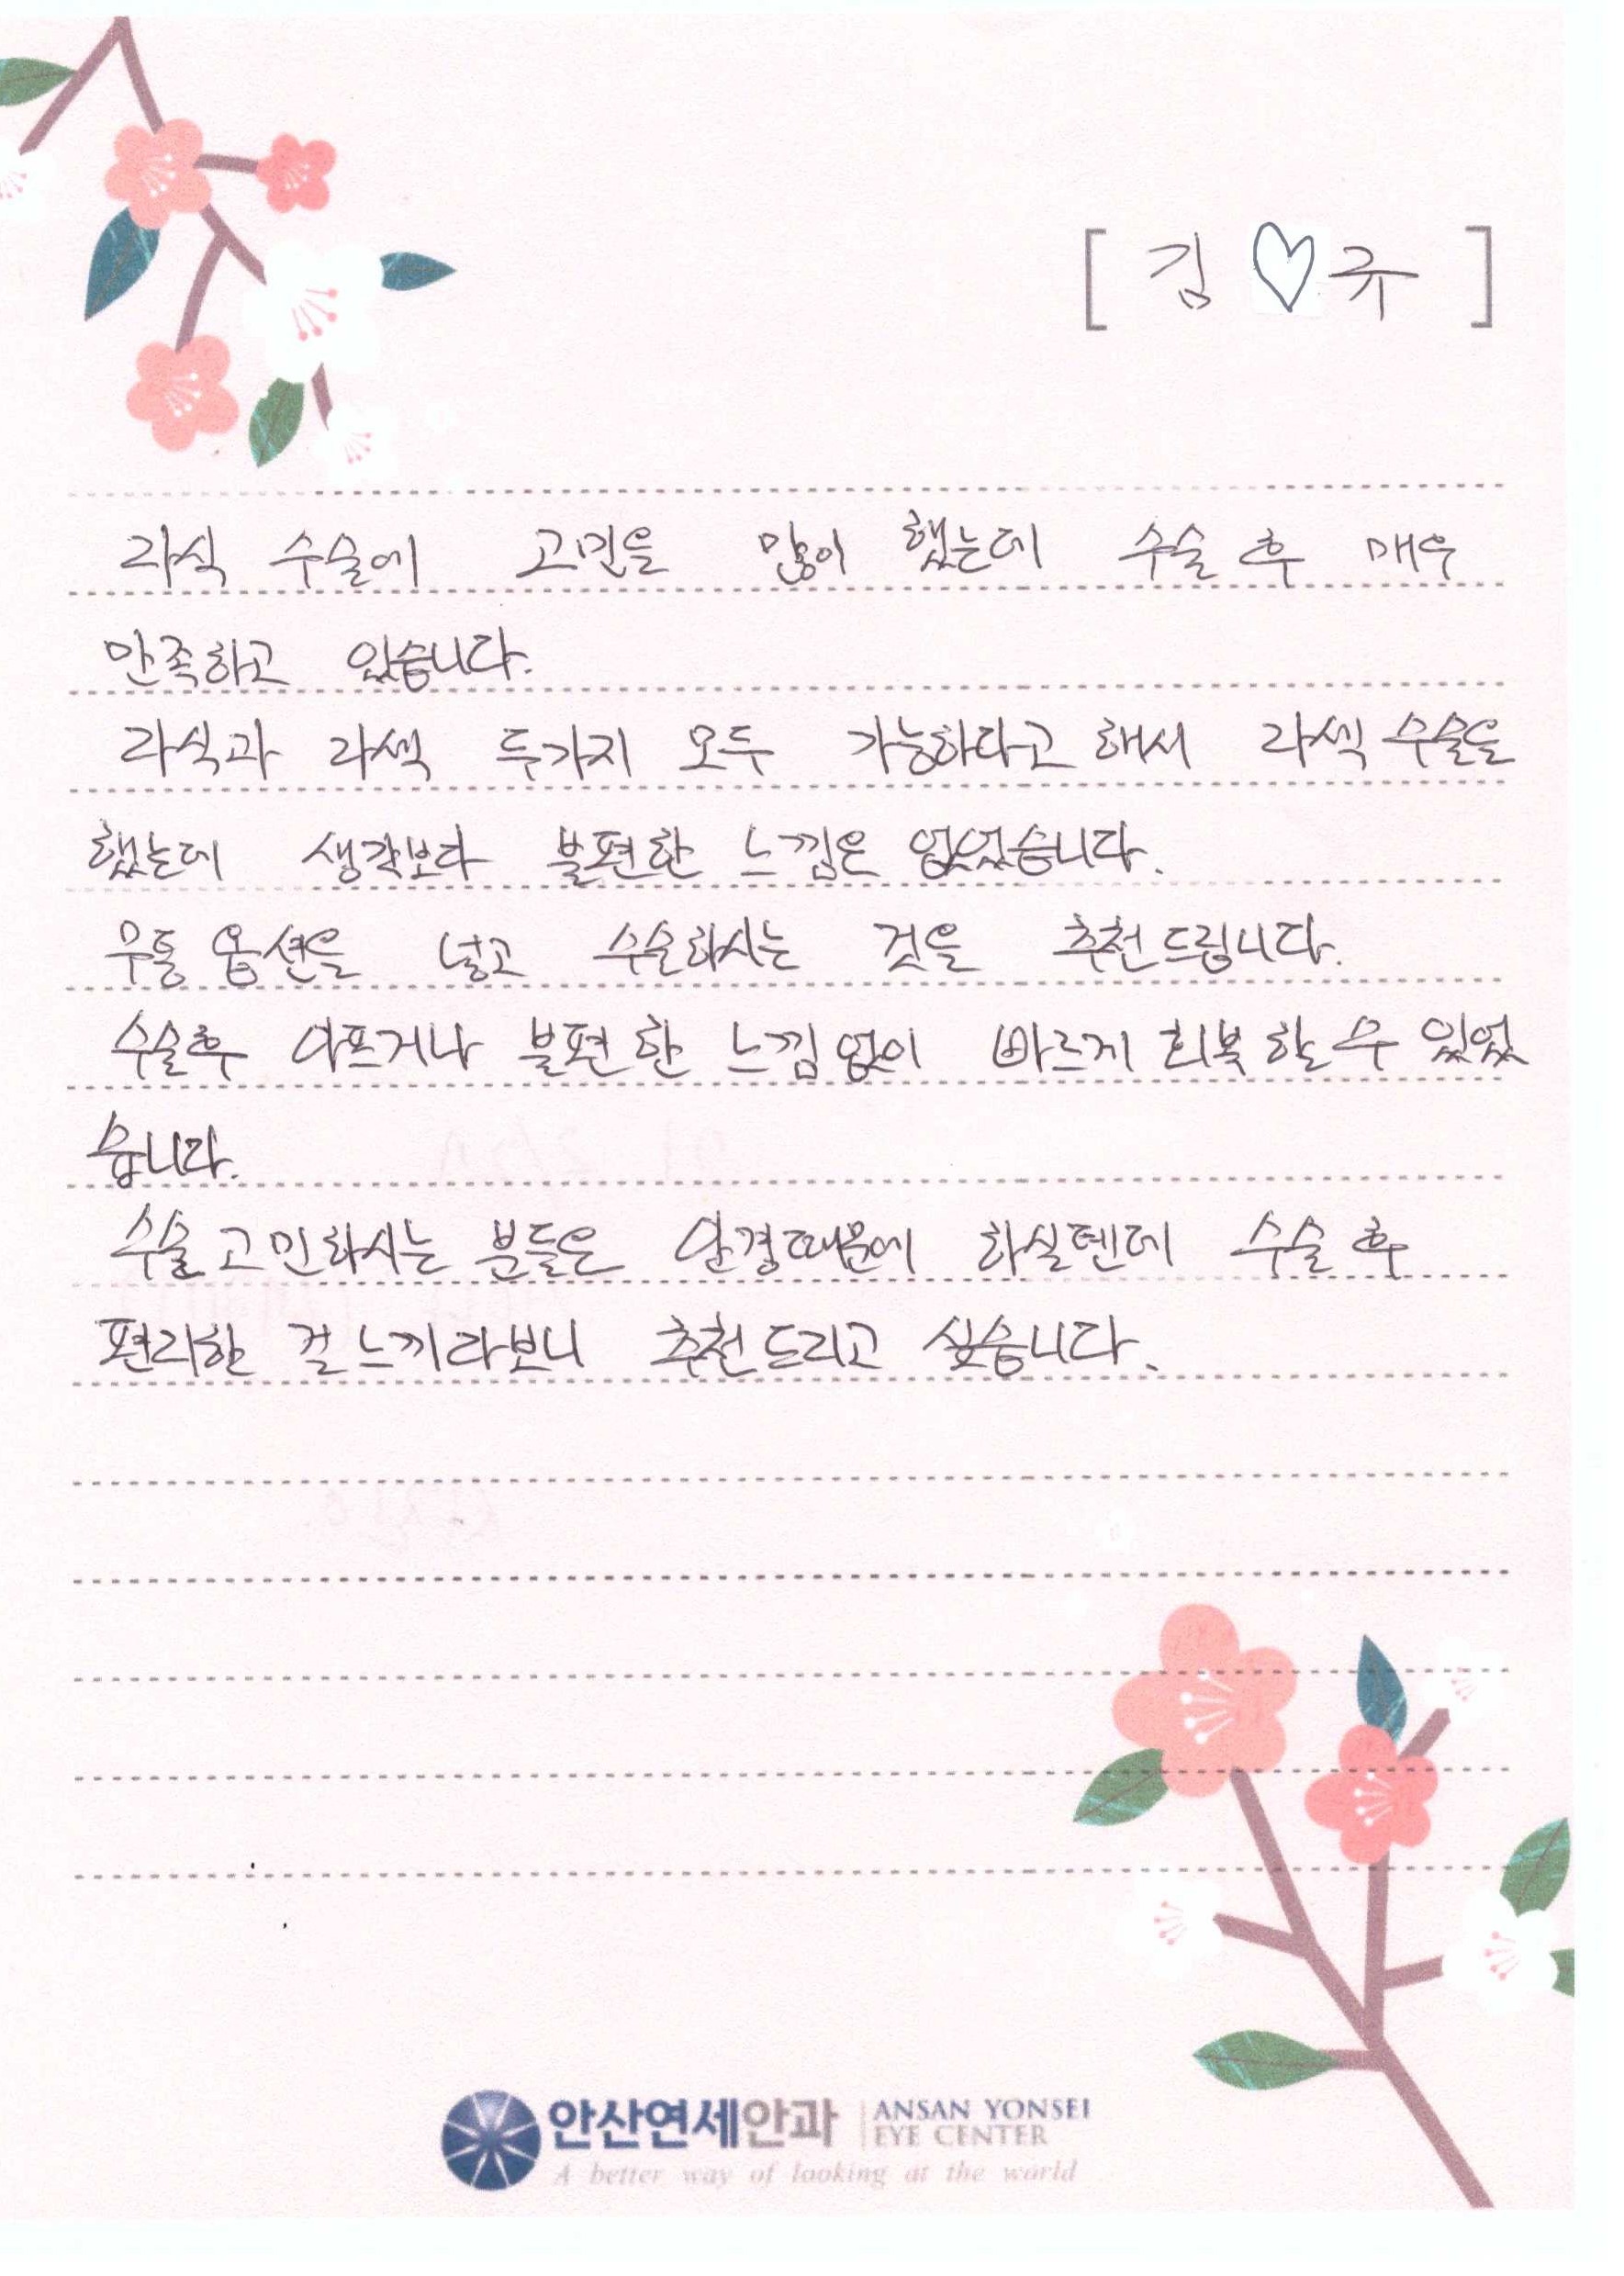 [ 김♡규 ]
라식 수술에 고민을 많이 했는데 수술 후 매우
만족하고 있습니다.
라식과 라섹 두가지 모두 가능하다고 해서 라섹 수술을
했는데 생각보다 불편한 느낌은 없었습니다.
무통 옵션을 넣고 수술하시는 것을 추천드립니다.
수술후 아프거나 불편한 느낌없이 빠르게 회복할 수 있었
습니다.
수술고민하시는 분들은 안경때문에 하실텐데 수술 후
편리한 걸 느끼라보니 추천드리고 싶습니다.
안산연세안과 ANSAN YONSEI
EYE CENTER
A better way of looking at the world